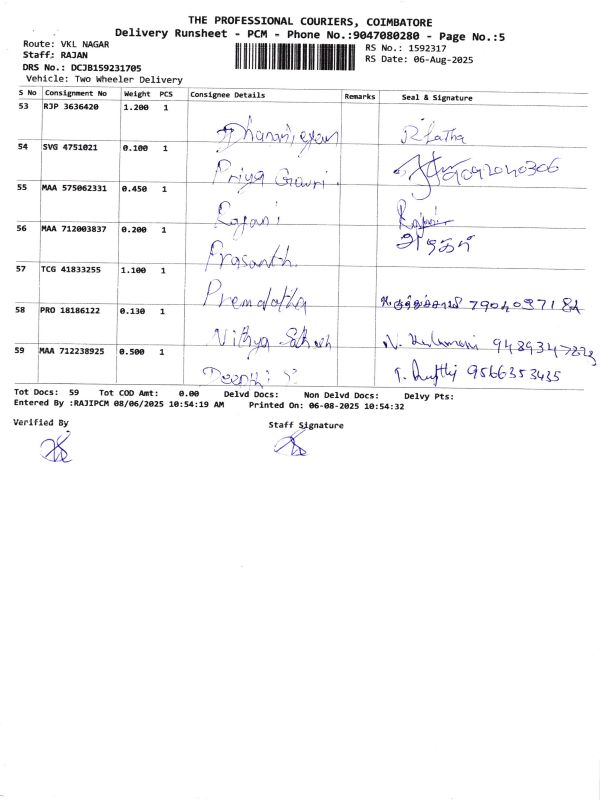 THE PROFESSIONAL COURIERS, COIMBATORE
Delivery Runsheet - PCM - Phone No.:9047080280 - Page No.:5
Route: VKL NAGAR
RS No.: 1592317
Staff: RAJAN
RS Date: 06-Aug-2025
DRS No.: DCJB159231705
Vehicle: Two Wheeler Delivery
S No Consignment No Weight PCS Consignee Details Remarks Seal & Signature
53 RJP 3636420 1.200 1 R Latha
54 SVG 4751021 0.100 1 Priya Gowri.
55 MAA 575062331 0.450 1 Rajani
56 MAA 712003837 0.200 1 Prasanth.
57 TCG 41833255 1.100 1 Premalatha
58 PRO 18186122 0.130 1 Vithya
59 MAA 712238925 0.500 1 9566353435
Tot Docs: 59 Tot COD Amt: 0.00 Delvd Docs: Non Delvd Docs: Delvy Pts:
Entered By :RAJIPCM 08/06/2025 10:54:19 AM Printed On: 06-08-2025 10:54:32
Verified By
Staff Signature